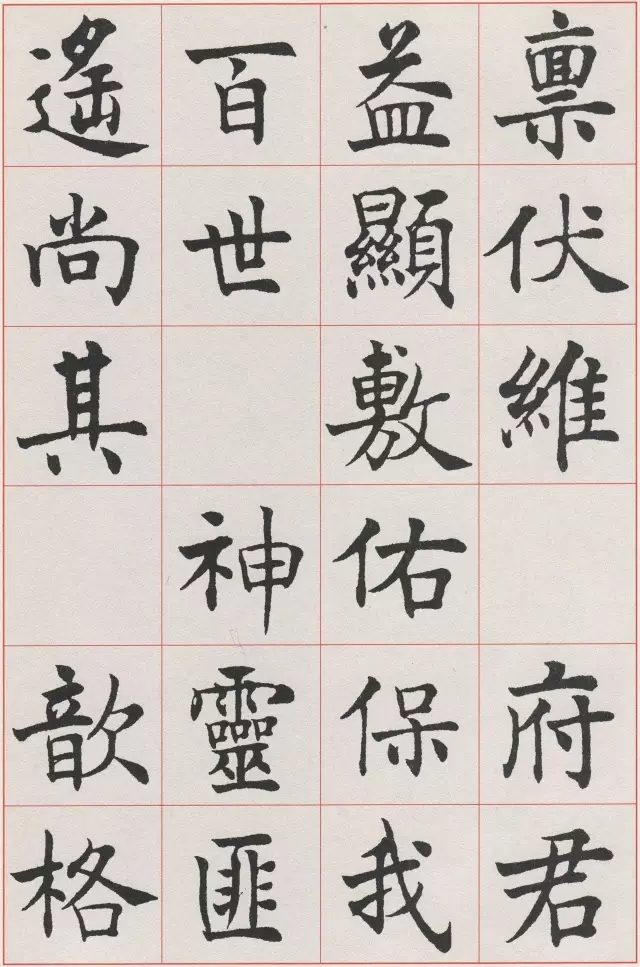 禀伏維 府君
益顯敷佑保我
百世 神靈匪
遙尚其 歆格